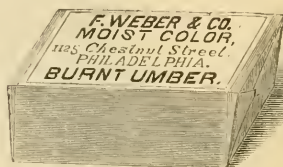 F. WEBER & CO.
MOIST COLOR,
1125 Chestnut Street.
PHILADELPHIA.
BURNT UMBER.